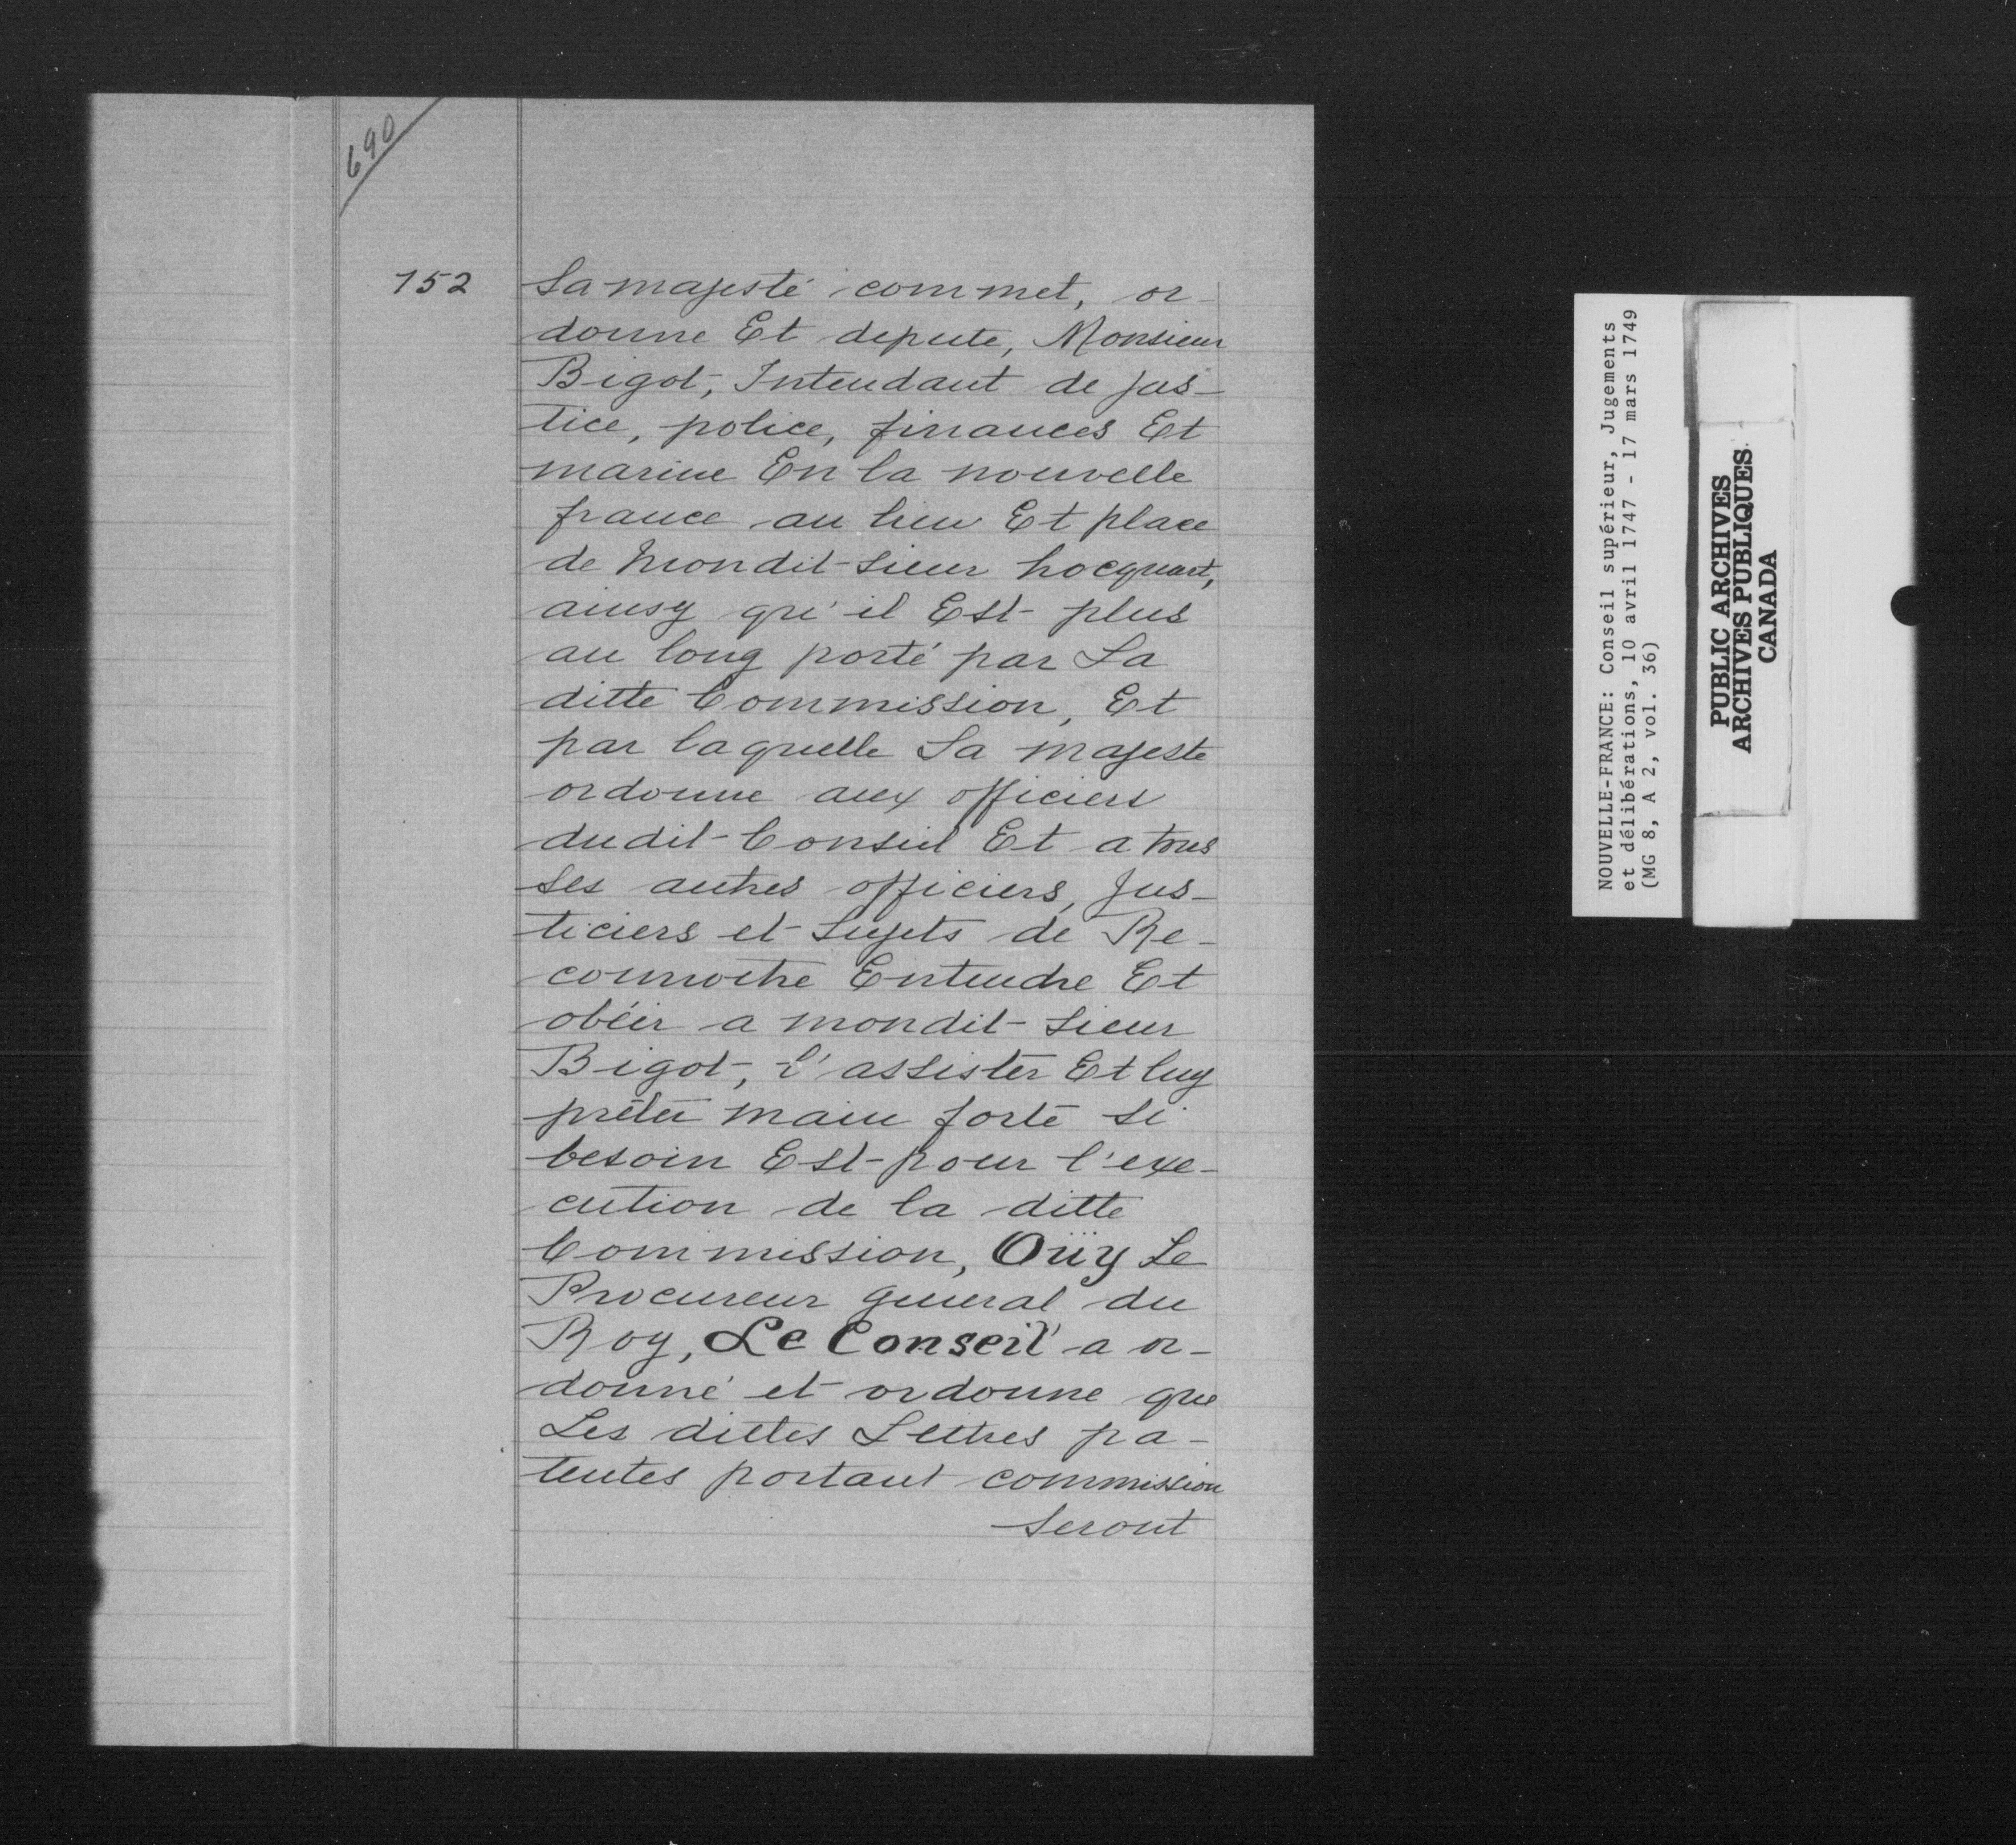 690
152
Sa majesté commet, or-
donne Et depute, Monsieur
Bigot, Intendant de jus-
tice, police, finances Et
marine En la nouvelle
france au lieu Et place
de mondit sieur hocquart,
ainsy qu'il Est plus
au long porté par La
ditte Commission, Et
par laquelle Sa majeste
ordonne aux officiers
dudit Conseil Et a tous
ses autres officiers, Jus-
ticiers et sujets de Re-
connoitre Entendre Et
obéir a mondit sieur
Bigot, l'assister Et luy
prêter main forte si
besoin Est pour l'exe-
cution de la ditte
Commission, Oüy Le
Procureur general du
Roy, Le Conseil a or-
donné et ordonne que
Les dittes Lettres pa-
tentes portant commission
seront
NOUVELLE-FRANCE: Conseil supérieur, Jugements
et délibérations, 10 avril 1747 - 17 mars 1749
(MG 8, A 2, vol. 36)
PUBLIC ARCHIVES
ARCHIVES PUBLIQUES
CANADA